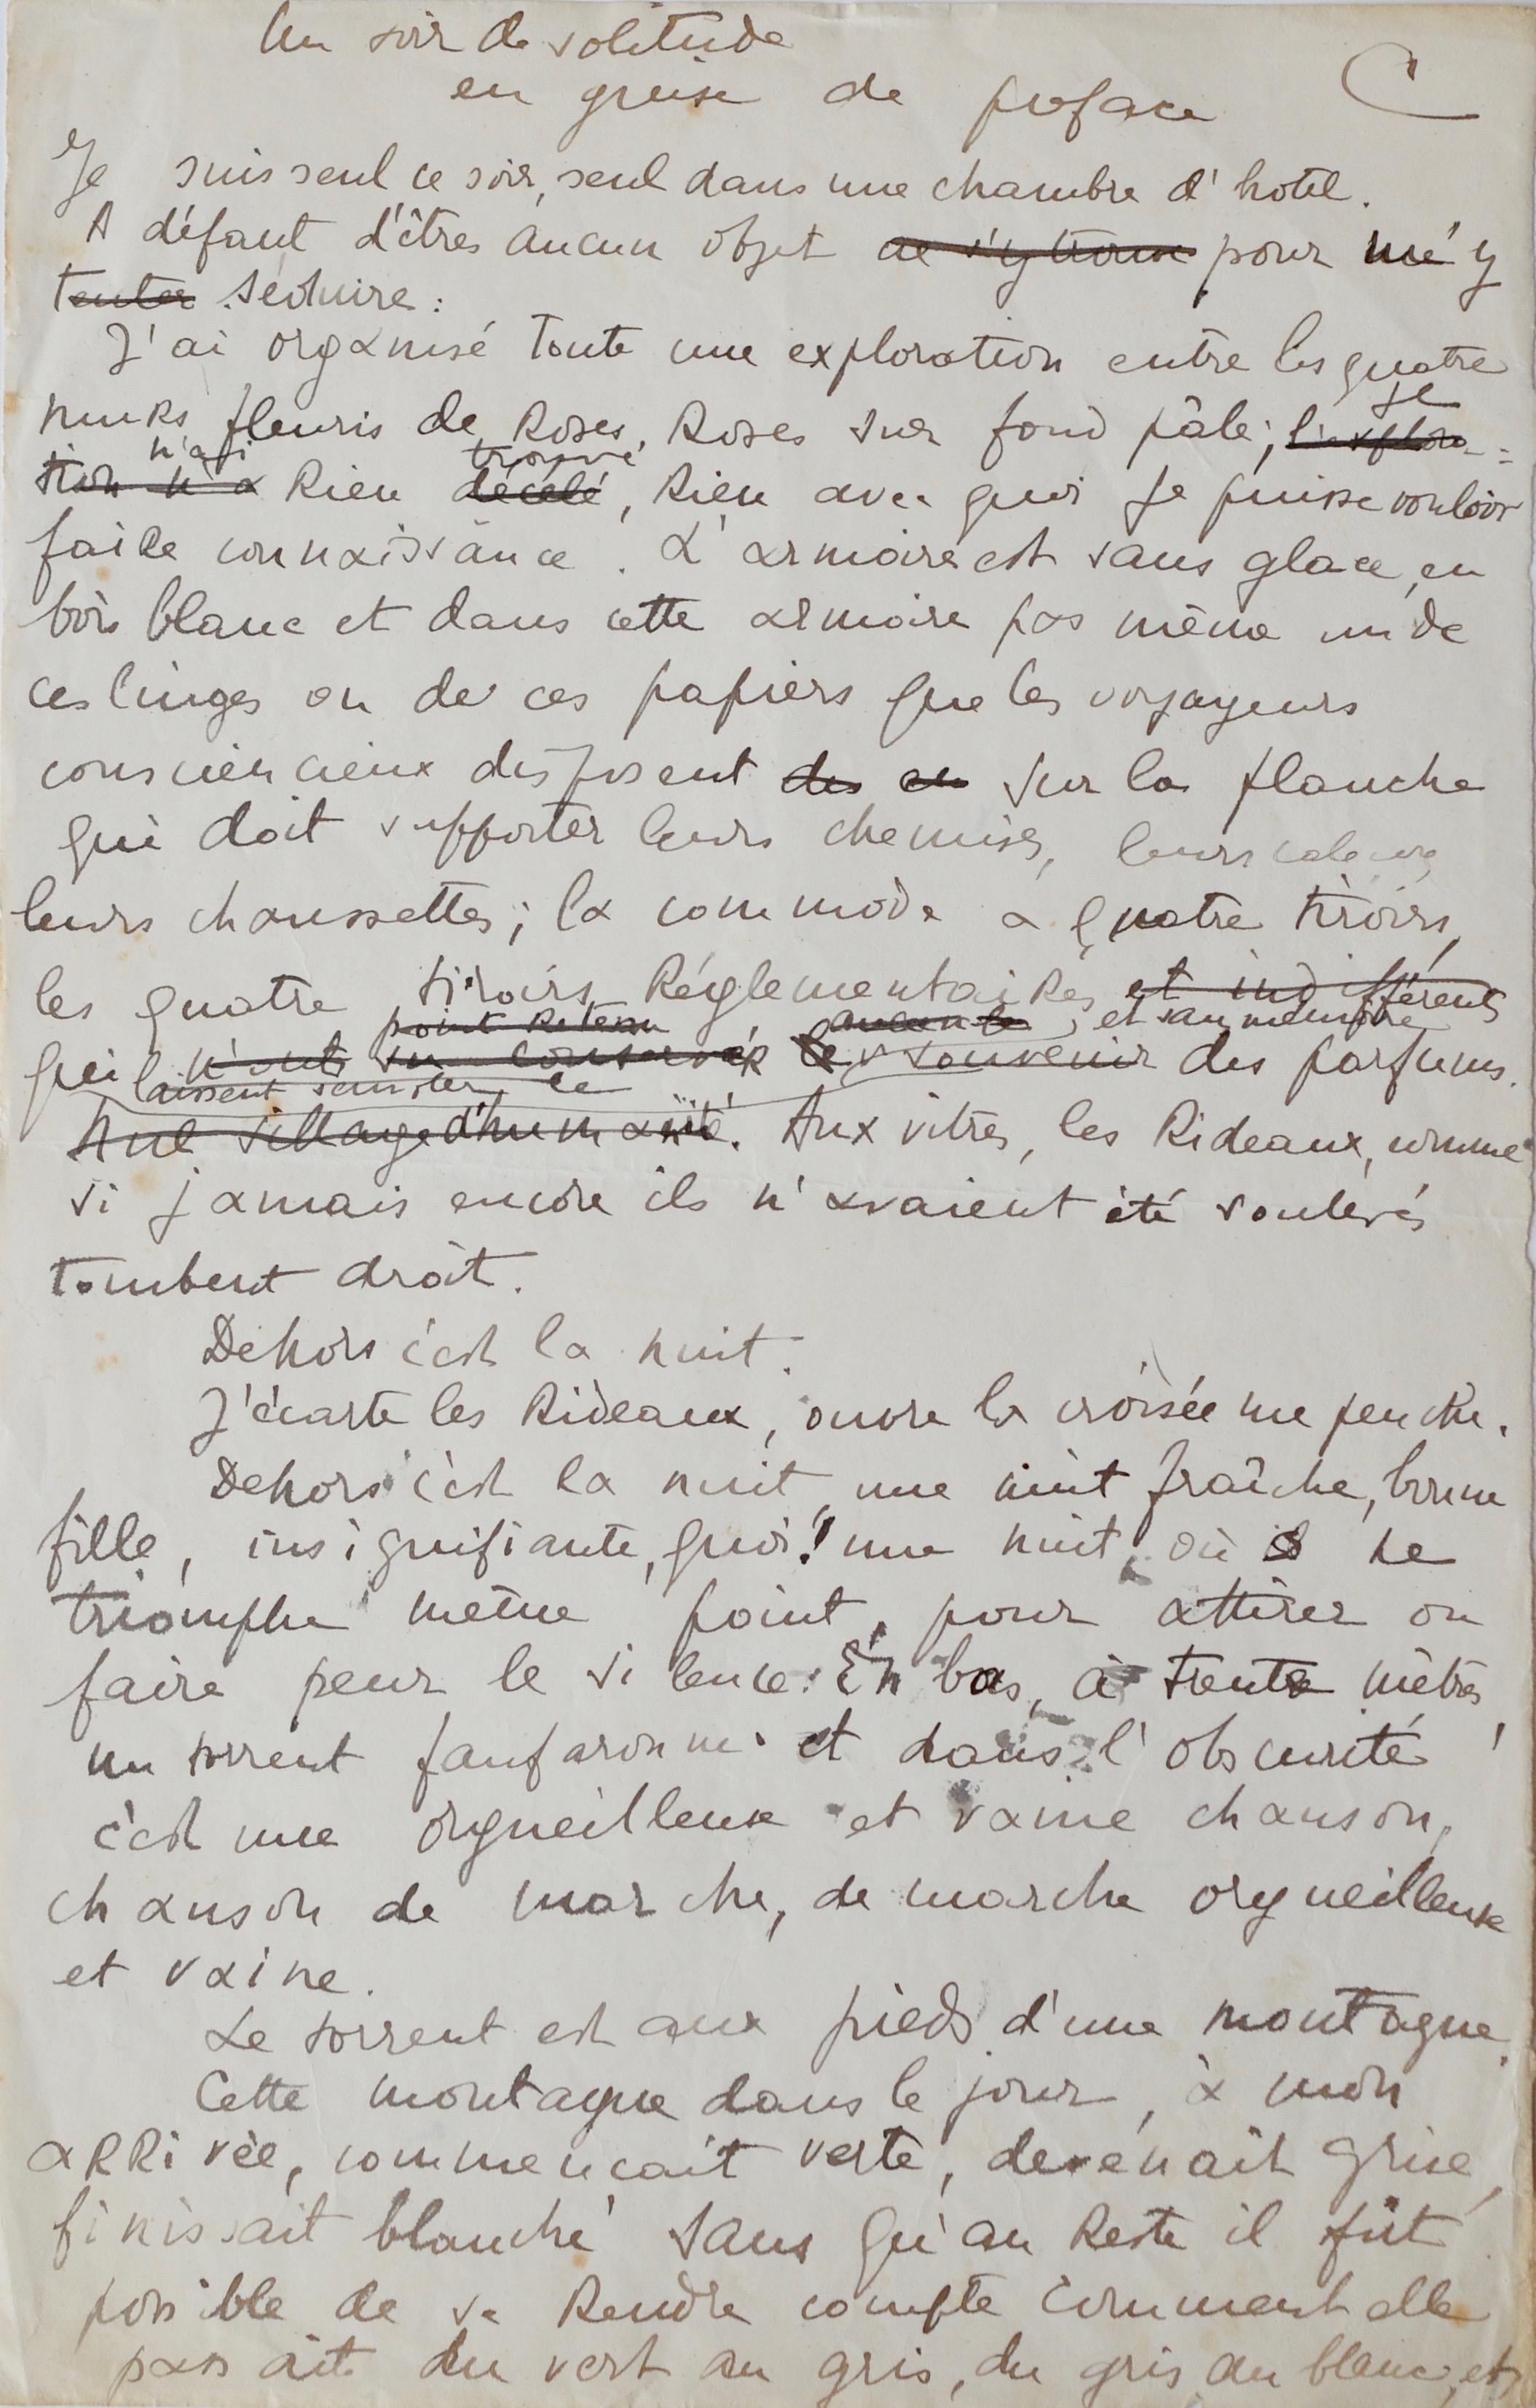 Un soir de solitude
en guise de preface C
Je suis seul ce soir, seul dans une chambre d'hotel.
A défaut d'êtres aucun objet ne s'y trouve pour m'y
tenter séduire :
J'ai organisé toute une exploration entre les quatre
murs fleuris de Roses, Roses sur fond pâle ; l'explora= je
tion n'a n'ai Rien décélé trouvé, Rien avec quoi je puisse vouloir
faire connaissance. L'armoire est sans glace, en
bois blanc et dans cette armoire pas même un de
ces linges ou de ces papiers que les voyageurs
consciencieux disposent des en sur la planche
qui doit supporter leurs chemises, leurs
leurs chaussettes ; la commode a quatre tiroirs,
les quatre tiroirs Réglementaires et indifférents
point Retenu et sans memoire
qui n'ont su conserver le souvenir des parfums.
laissent
Nul sillage d'humanité. Aux vitres, les Rideaux, comme
si jamais encore ils n'avaient été soulevés
tombent droit.
Dehors c'est la nuit.
J'écarte les Rideaux, ouvre la croisée me penche.
Dehors c'est la nuit, une nuit fraîche, bonne
fille, insignifiante, quoi ! une nuit où ne
triomphe même point, pour attirer ou
faire peur le silence. En bas, à trente mètres
un torrent fanfaronne et dans l'obscurité
c'est une orgueilleuse et vaine chanson,
chanson de marche, de marche orgueilleuse
et vaine.
Le torrent est aux pieds d'une montagne.
Cette montagne dans le jour, à mon
aRRivée, commencait verte, devenait grise,
finissait blanche sans qu'au Reste il fût
possible de se Rendre compte comment elle
passait du vert au gris, du gris au blanc, et